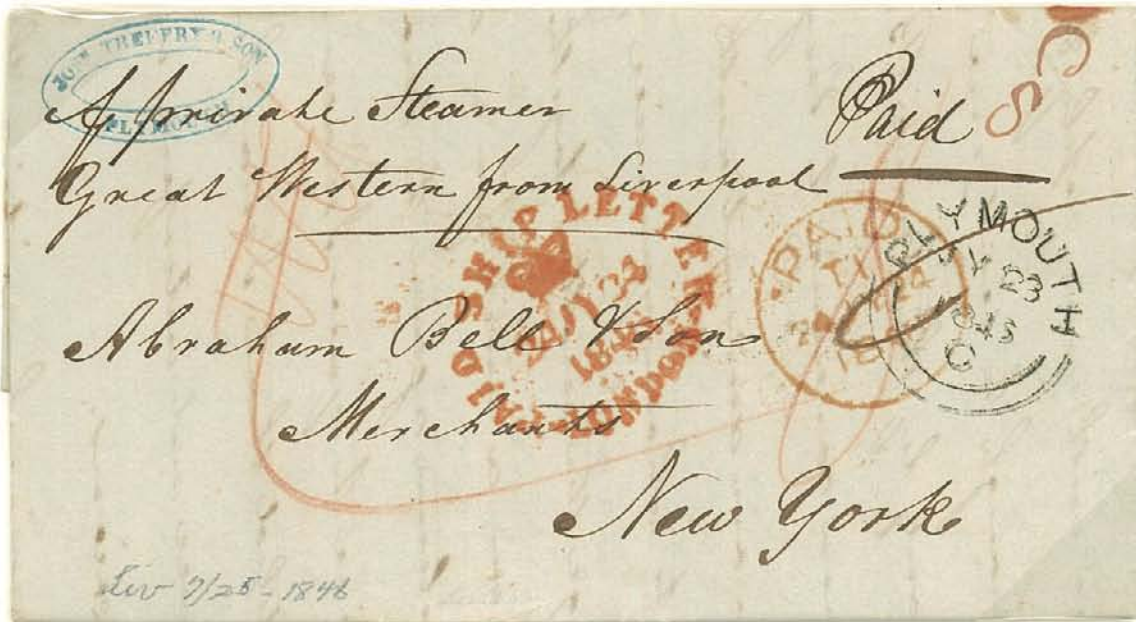 JOHN TREFFRY & SON
PLYMOUTH
private Steamer
Great Western from Liverpool
Paid
8
PAID SHIP LETTER LONDON
24
PAID
24
PLYMOUTH
JY 23
C
Abraham Bell & Son
Merchants
New York
Liv 7/25-1846